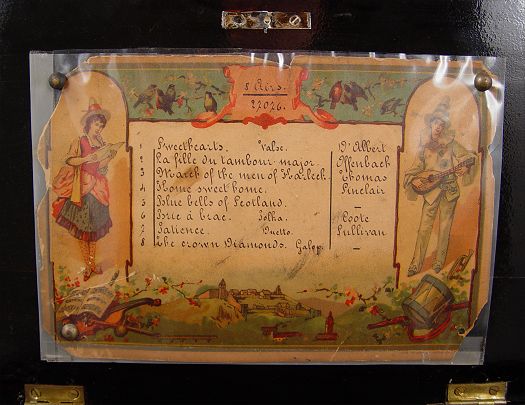 8 Airs.
27026.
1 Sweethearts. Valse. D'Albert
2 La fille du tambour-major. Offenbach
3 March of the men of Harlech. Thomas
4 Home sweet home. Sinclair
5 Blue bells of Scotland. —
6 Bric à brac. Polka. Coote
7 Patience. Duetto. Sullivan
8 The crown Diamonds. Galop. —